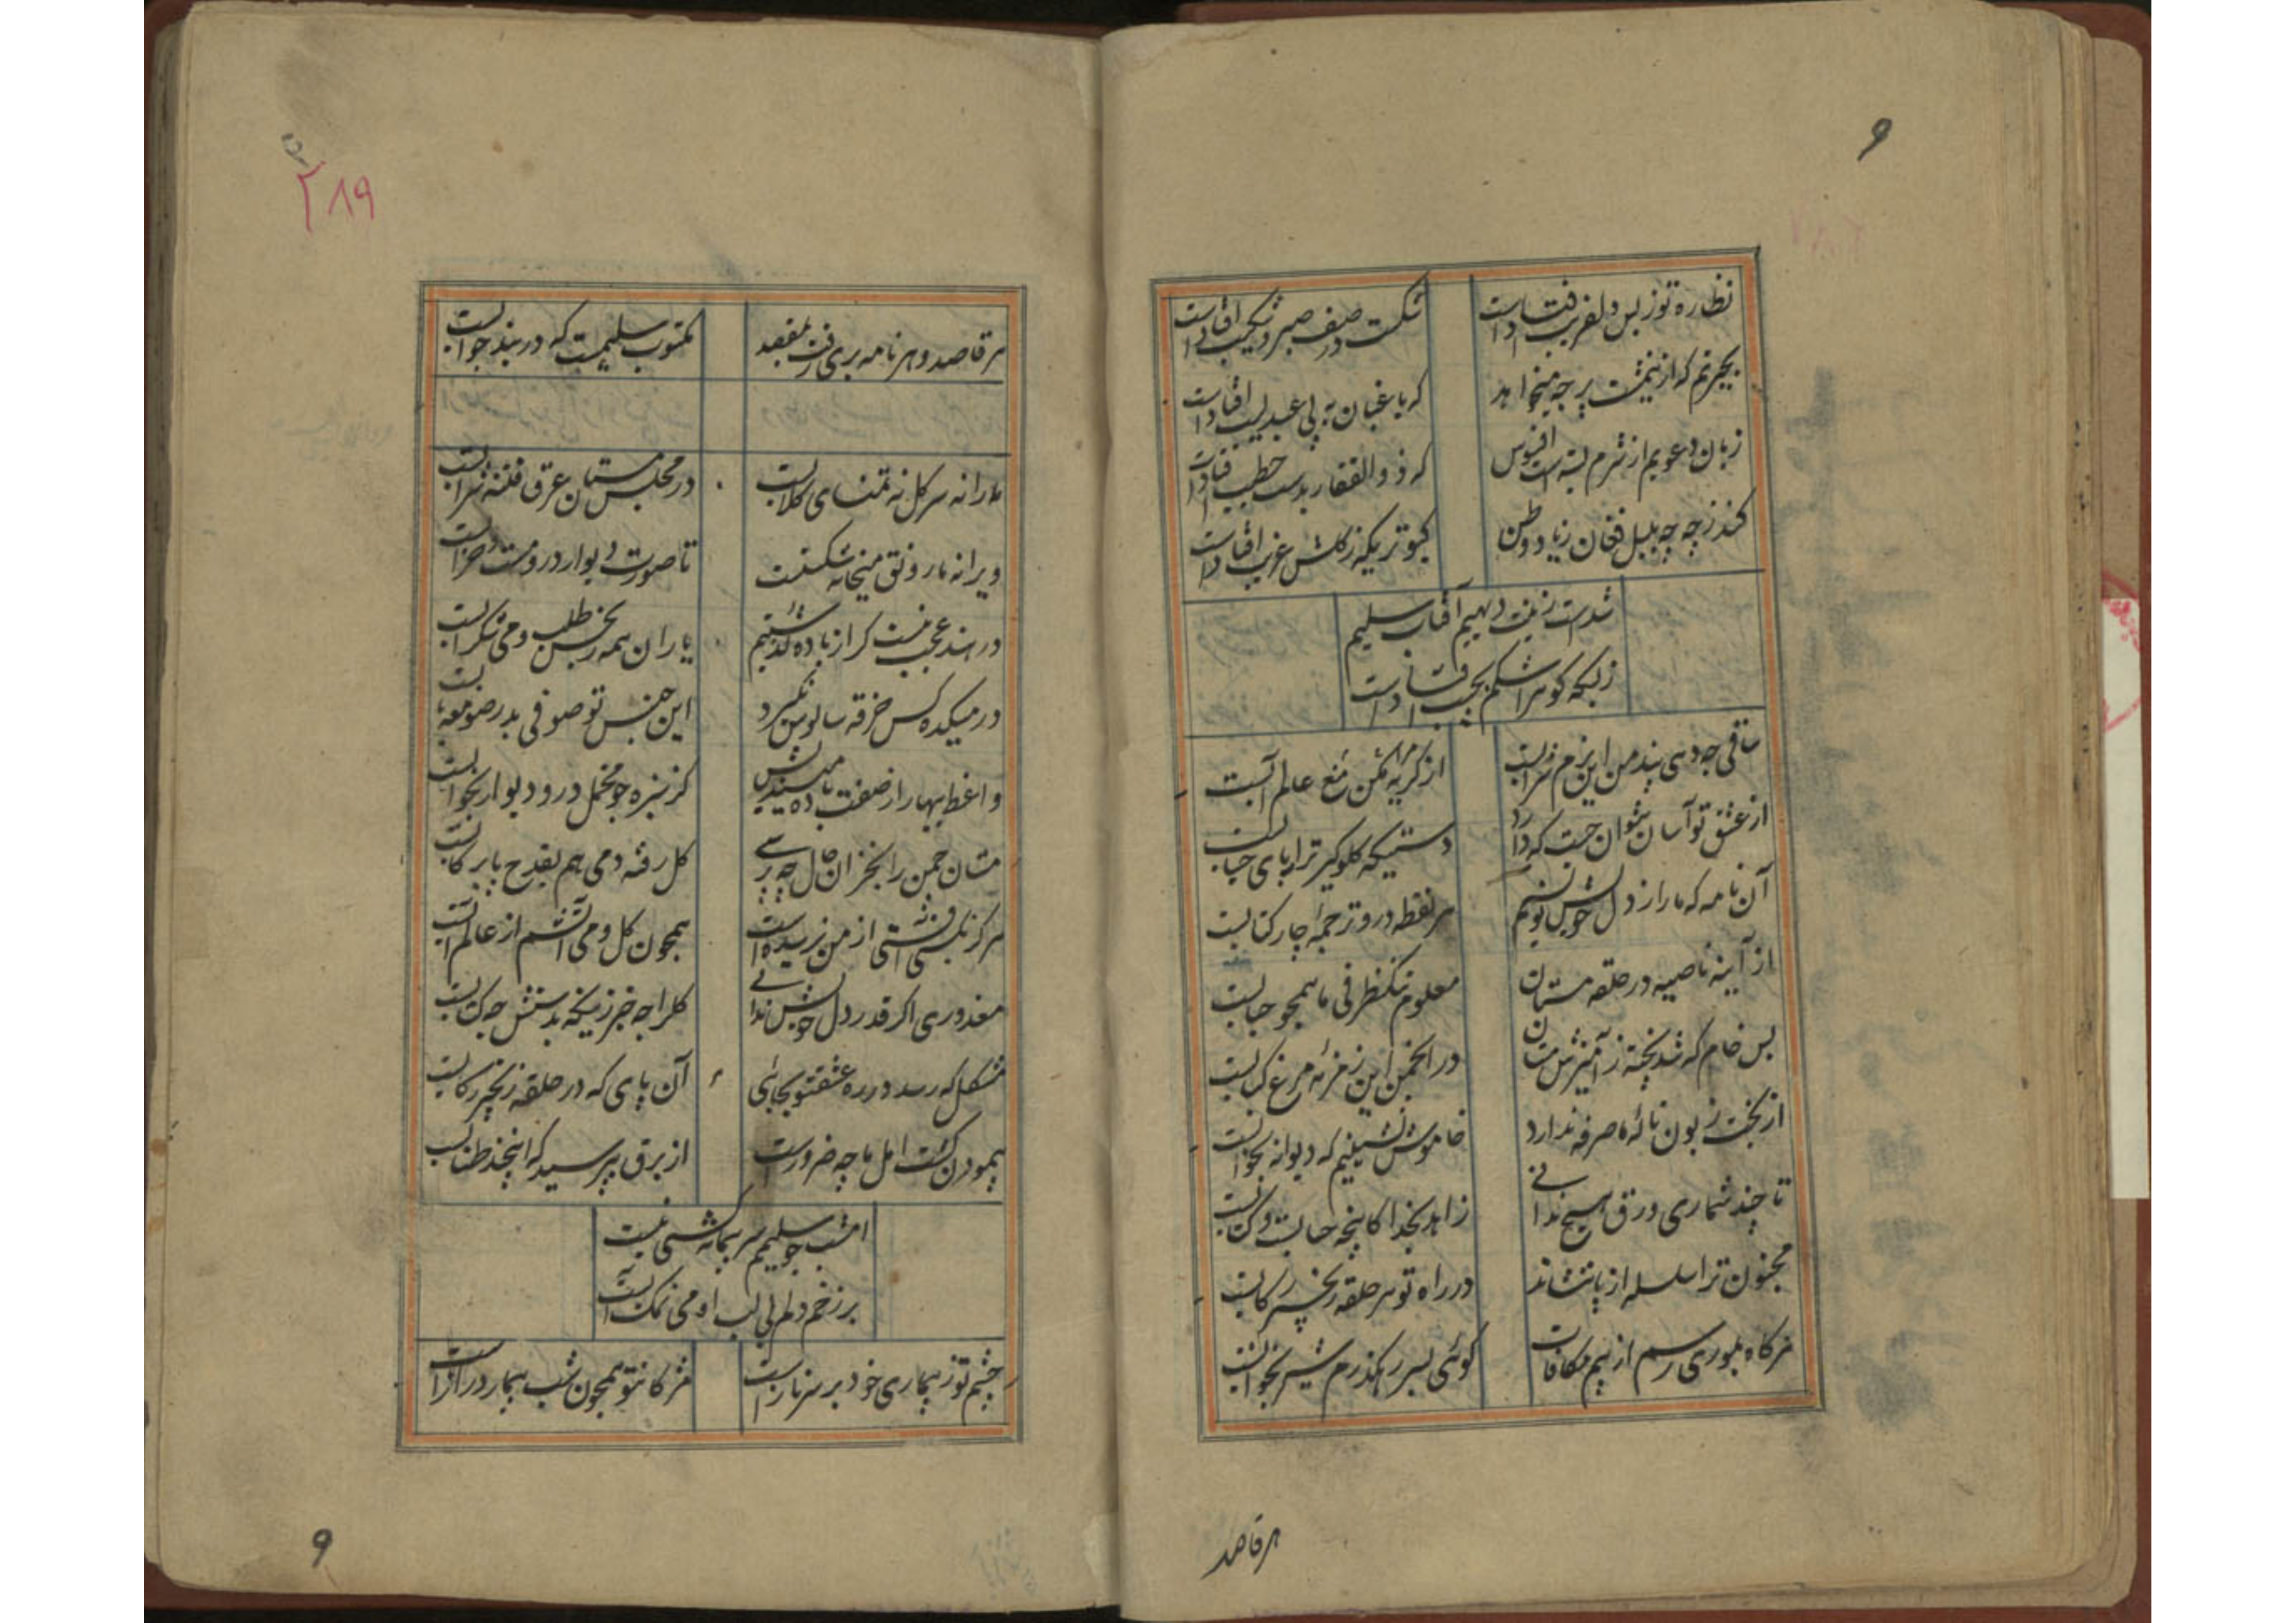 ۹
نظاره تو ز بس دلفریب افتادست
شکست در صف صبر و شکیب افتادست
بحیرتم که ازین مشت پر چه میخواهد
که باغبان به پی عندلیب افتادست
زبان دعویم از شرم بسته است افسوس
که ذوالفقار بدست خطیب افتادست
کند ز چه چه بلبل فغان زیاد وطن
کبوتریکه ز گلشن غریب افتادست
شدست زینت دیهیم آفتاب سلیم
ز بسکه گوهر اشکم نجیب افتادست
ساقی چه دهی پند من این بزم شرابست
از گریه مکن منع مرا عالم آبست
از عشق تو آسان نتوان جست که دارد
دستیکه گلوگیر تر از پای حسابست
آن نامه که ما را ز دل خویش نویسیم
هر نقطه درو ترجمه چار کتابست
از آینه ناصیه در حلقه مستان
معلوم تنک ظرفی ما همچو حبابست
بس خام که شد پخته ز آمیزش مستان
در انجمن این زمزمه مرغ کبابست
از بخت زبون ناله ما صرفه ندارد
خاموش نشینیم که دیوانه بخوابست
تا چند شماری ورق هیچ ندانی
زاهد بخدا کاینچه حسابست و کتابست
مجنون ترا سلسله از پا ننشاند
در راه تو هر حلقه زنجیر رکابست
هر گاه بموری رسم از بیم مکافات
گوئی بسر رهگذرم شیر بخوابست
هر قاصد
۲۸۹
هر قاصد و هر نامه بری رفت بمقصد
مکتوب سلیمست که در بند جوابست
ما را نه سر گل نه تمنای گلابست
در مجلس مستان عرق فتنه شرابست
ویرانه ما رونق میخانه شکستست
تا صورت دیوار درو مست و خرابست
در هند عجب نیست گر از باده گذشتیم
یاران همه بخس طلب و می شکرابست
در میکده کس خرقه سالوس نگیرد
این جنس تو صوفی بدر صومعه بابست
واعظ بهار از صفت باده میندیش
کز سبزه چو مخمل در و دیوار بخوابست
مستان چمن را بخزان حال چه پرسی
گل رفته و می هم بقدح پا برکابست
هرگز بکسی زشتی از من نرسیده است
همچون گل و می آتشم از عالم آبست
معذوری اگر قدر دل خویش ندانی
گل را چه خبر زینکه بدستش چه کتابست
مشکل که رسد در ره عشق تو بجائی
آن پای که در حلقه زنجیر رکابست
پیمودن کشت امل ما چه ضرورست
از برق بپرسید که اینچند طنابست
امشب چو سلیم سر پیمانه کشی نیست
بر زخم دلم بی لب او می نمک آبست
چشم تو ز بیماری خود بر سر نازست
مژگان تو همچون شب بیمار درازست
۹